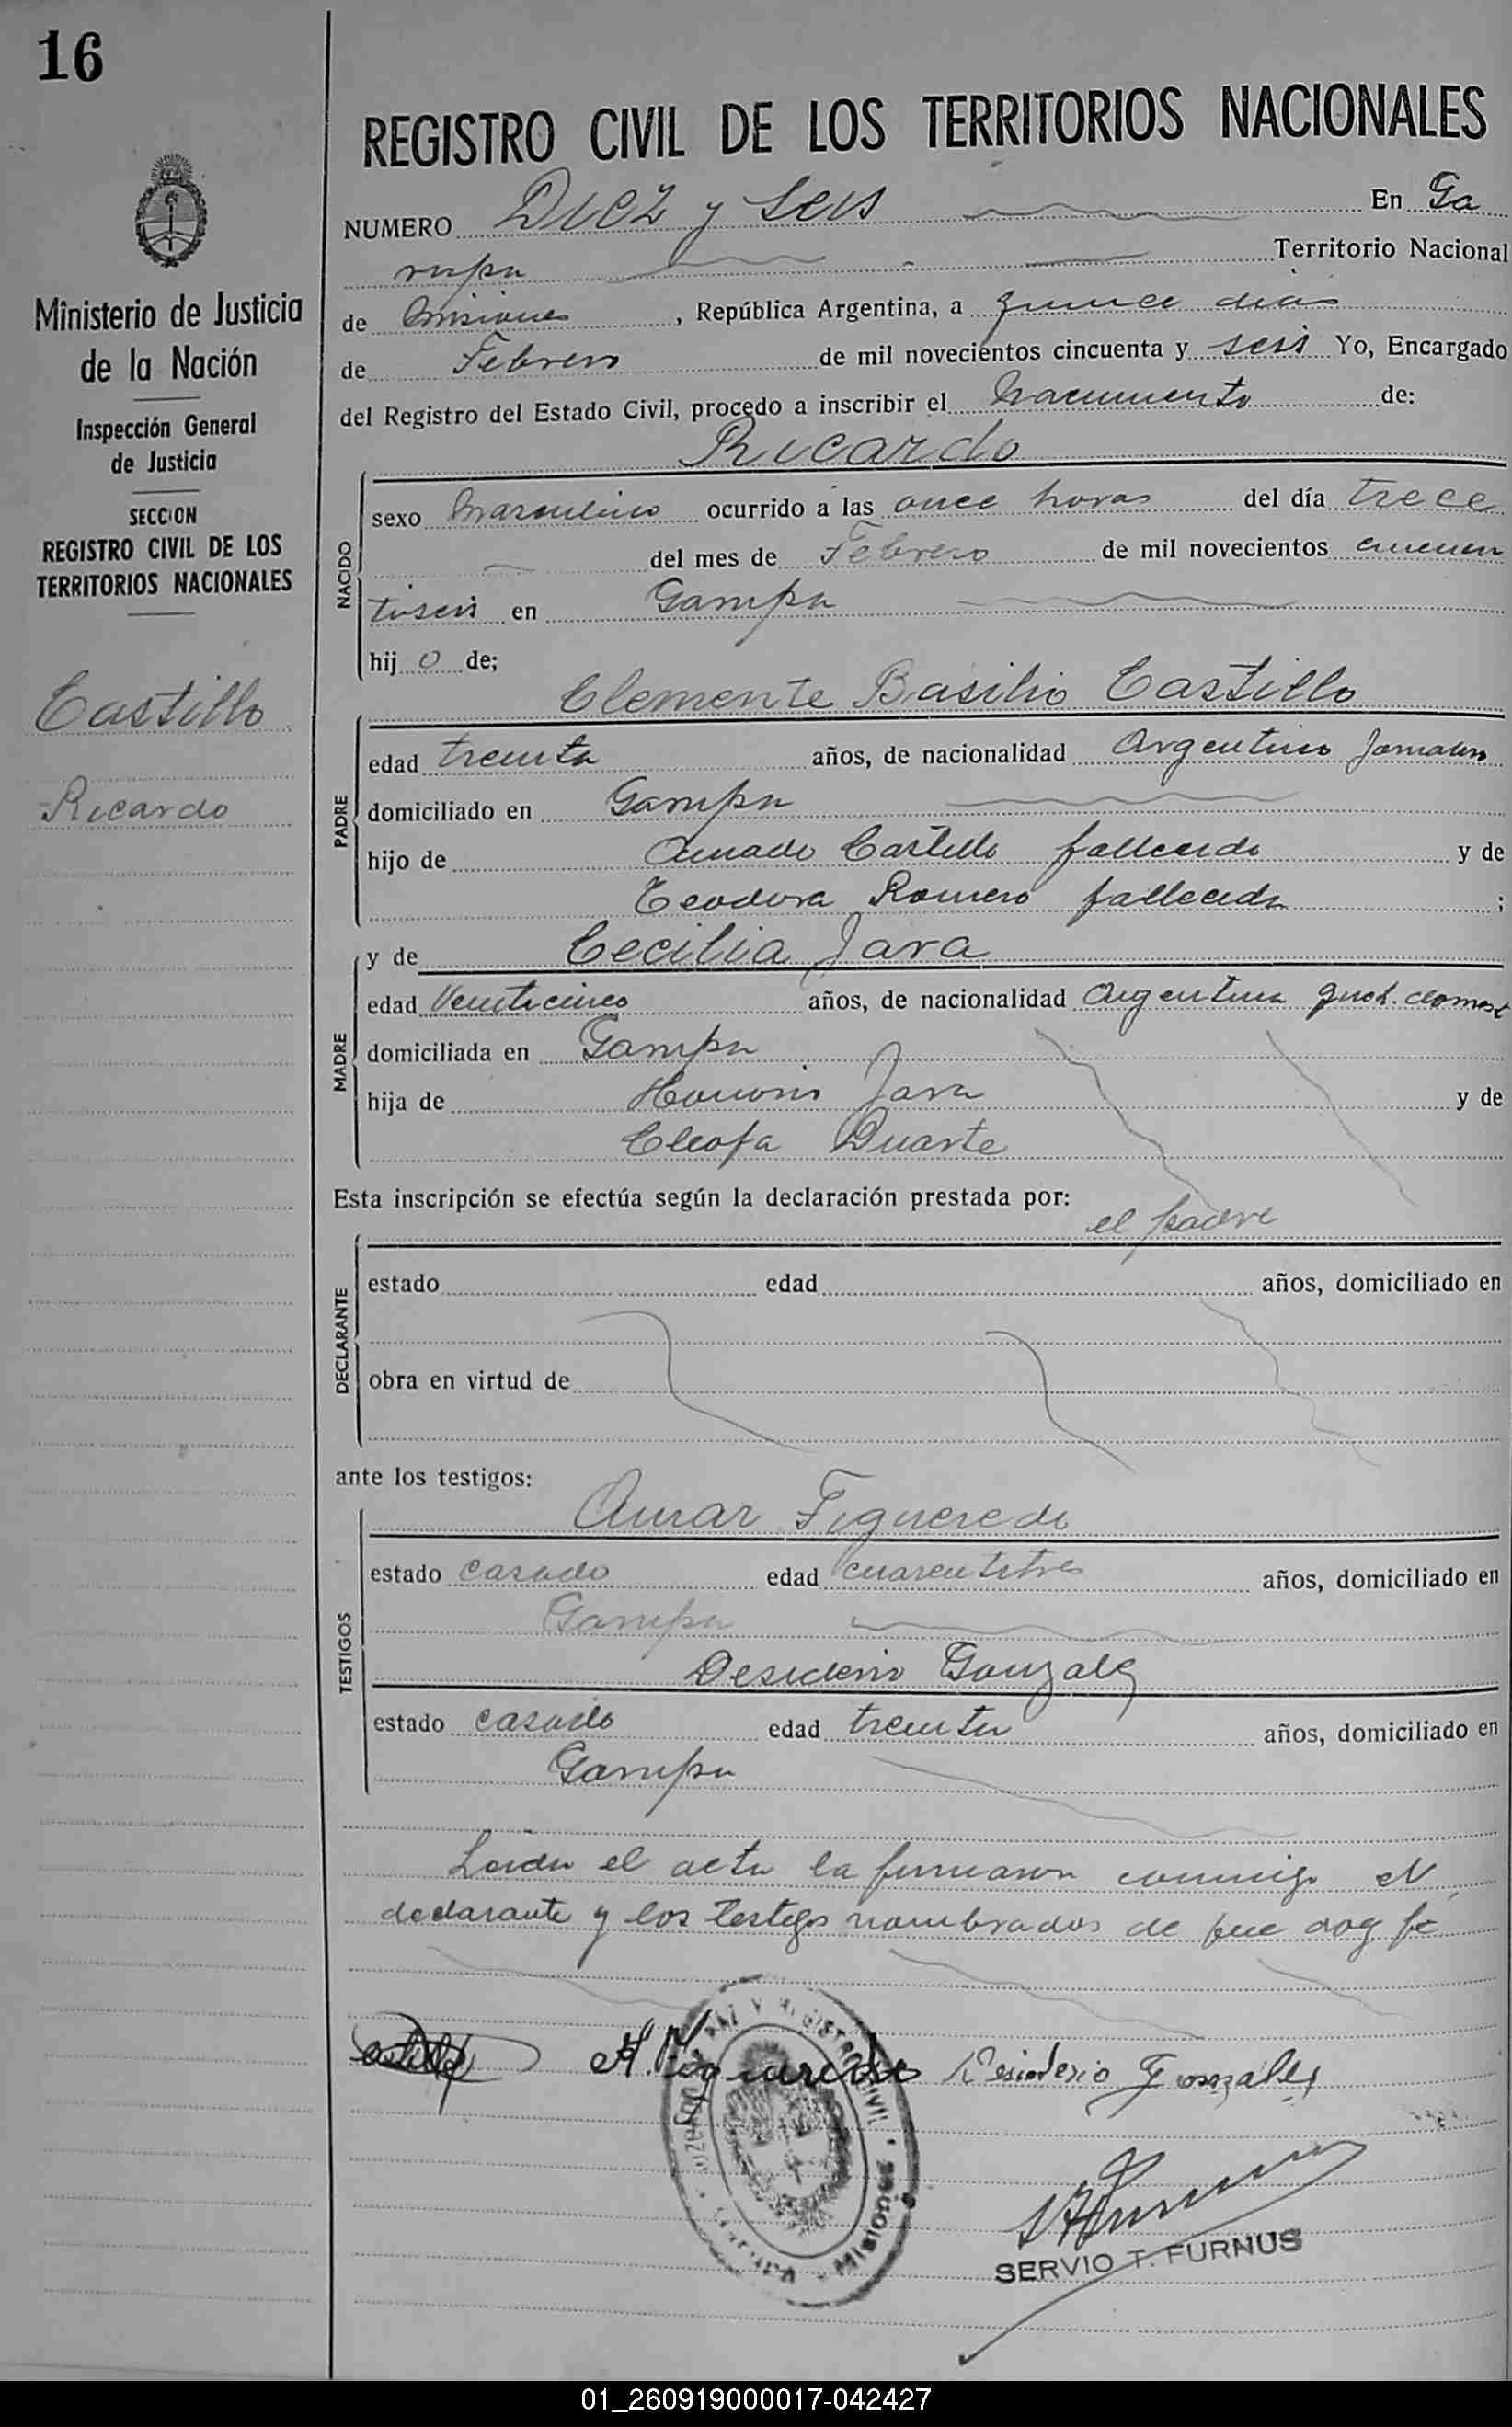 16
REGISTRO CIVIL DE LOS TERRITORIOS NACIONALES
NUMERO Diez y seis En Ga
rupa Territorio Nacional
de Misiones, República Argentina, a quince dias
de Febrero de mil novecientos cincuenta y seis Yo, Encargado
del Registro del Estado Civil, procedo a inscribir el Nacimiento de:
Ricardo
NACIDO
sexo Masculino ocurrido a las once horas del día trece
del mes de Febrero de mil novecientos cincuen
tiseis en Garupa
hijo de;
Clemente Basilio Castillo
PADRE
edad treinta años, de nacionalidad Argentino Jornalero
domiciliado en Garupa
hijo de Amado Castillo fallecido y de
Teodora Romero fallecida ;
MADRE
y de Cecilia Jara
edad Veinticinco años, de nacionalidad Argentina queh. domest
domiciliada en Garupa
hija de Honorio Jara y de
Cleofa Duarte
Esta inscripción se efectúa según la declaración prestada por:
el padre
DECLARANTE
estado edad años, domiciliado en
obra en virtud de
ante los testigos:
Figueredo
TESTIGOS
estado casado edad cuarentitres años, domiciliado en
Garupa
Desiderio Gonzalez
estado casado edad treinta años, domiciliado en
Garupa
Leida el acta la firmaron conmigo el
declarante y los testigos nombrados de que doy fe
Castillo A. Figueredo Desiderio Gonzales
PAZ Y REGISTRO CIVIL
Misiones
SERVIO T. FURNUS
Ministerio de Justicia
de la Nación
Inspección General
de Justicia
SECCION
REGISTRO CIVIL DE LOS
TERRITORIOS NACIONALES
Castillo
Ricardo
01_260919000017-042427